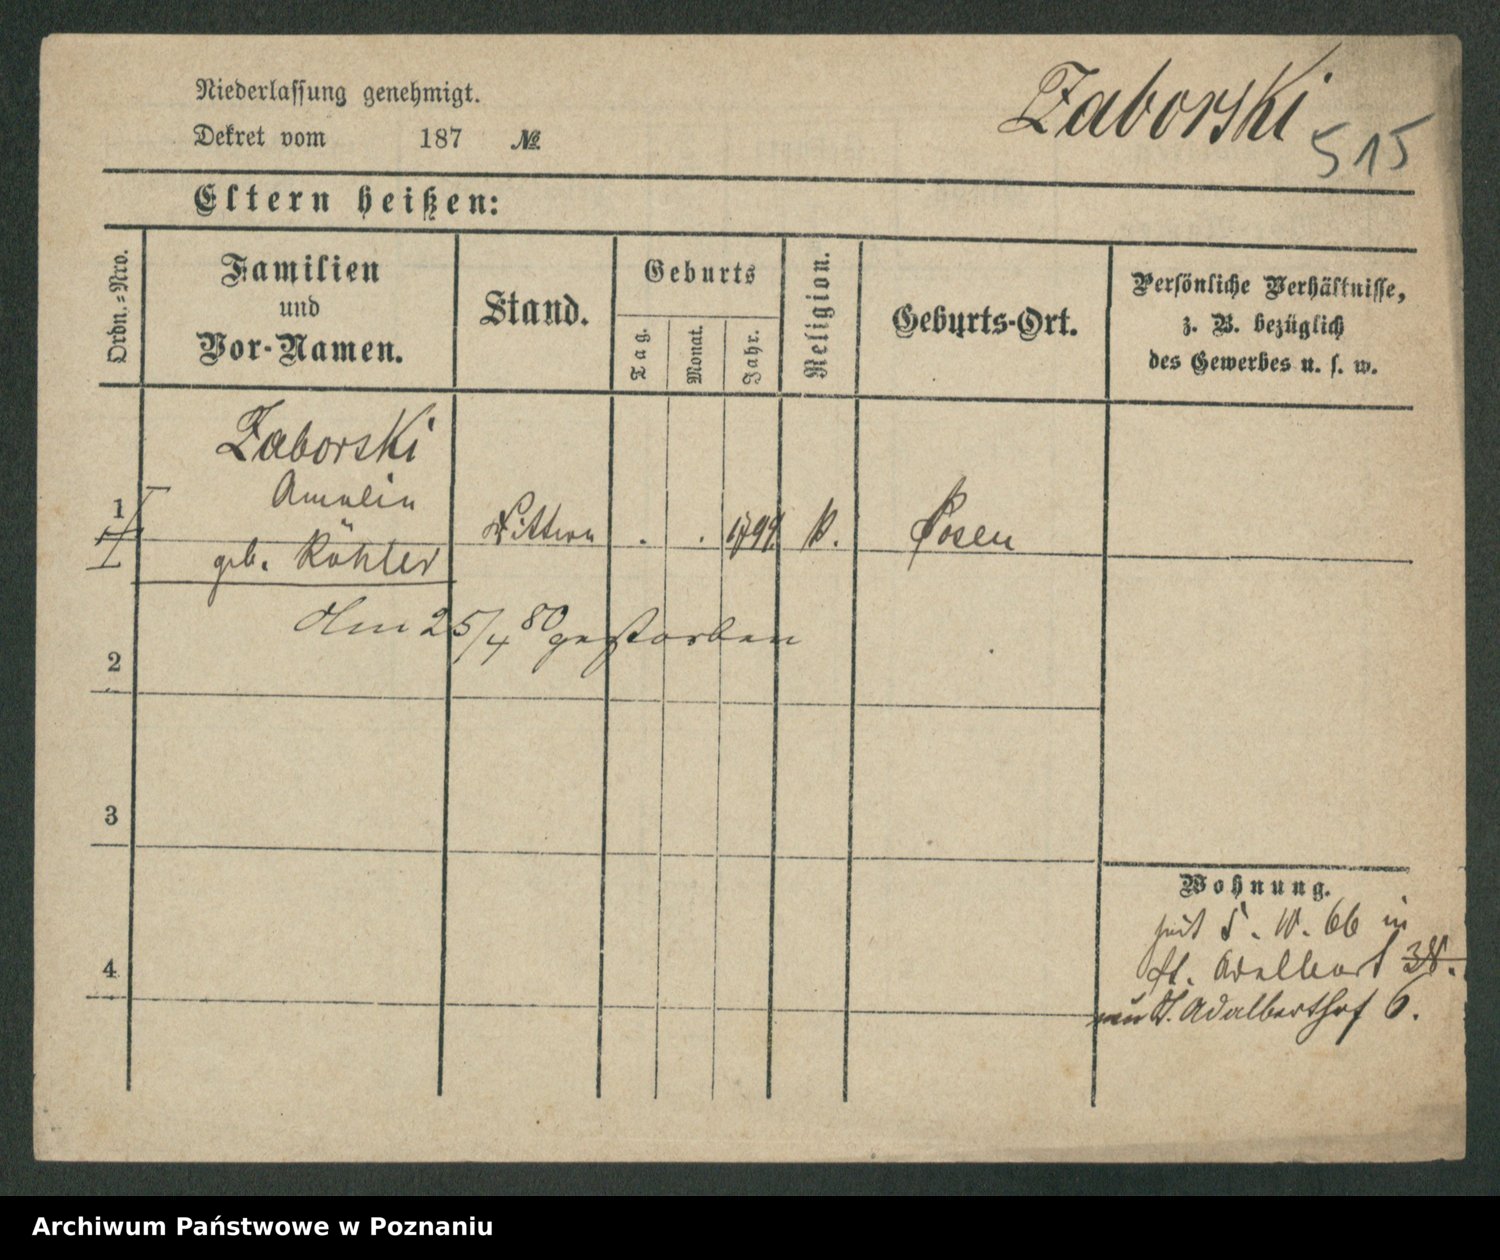 Niederlassung genehmigt.
Dekret vom 187 №
Zaborski
515
Eltern heißen:
Ordn.-Nro.
Familien
und
Vor-Namen.
Stand.
Geburts
Tag.
Monat.
Jahr.
Religion.
Geburts-Ort.
Persönliche Verhältnisse,
z. B. bezüglich
des Gewerbes u. s. w.
1
Zaborski
Amalie
geb. Köhler
Wittwe
. . K.
Posen
Am 25/4 80 gestorben
2
3
4
Wohnung.
seit 5. 10. 66 in
St. Adalbert 38.
St. Adalberthof 6.
Archiwum Państwowe w Poznaniu